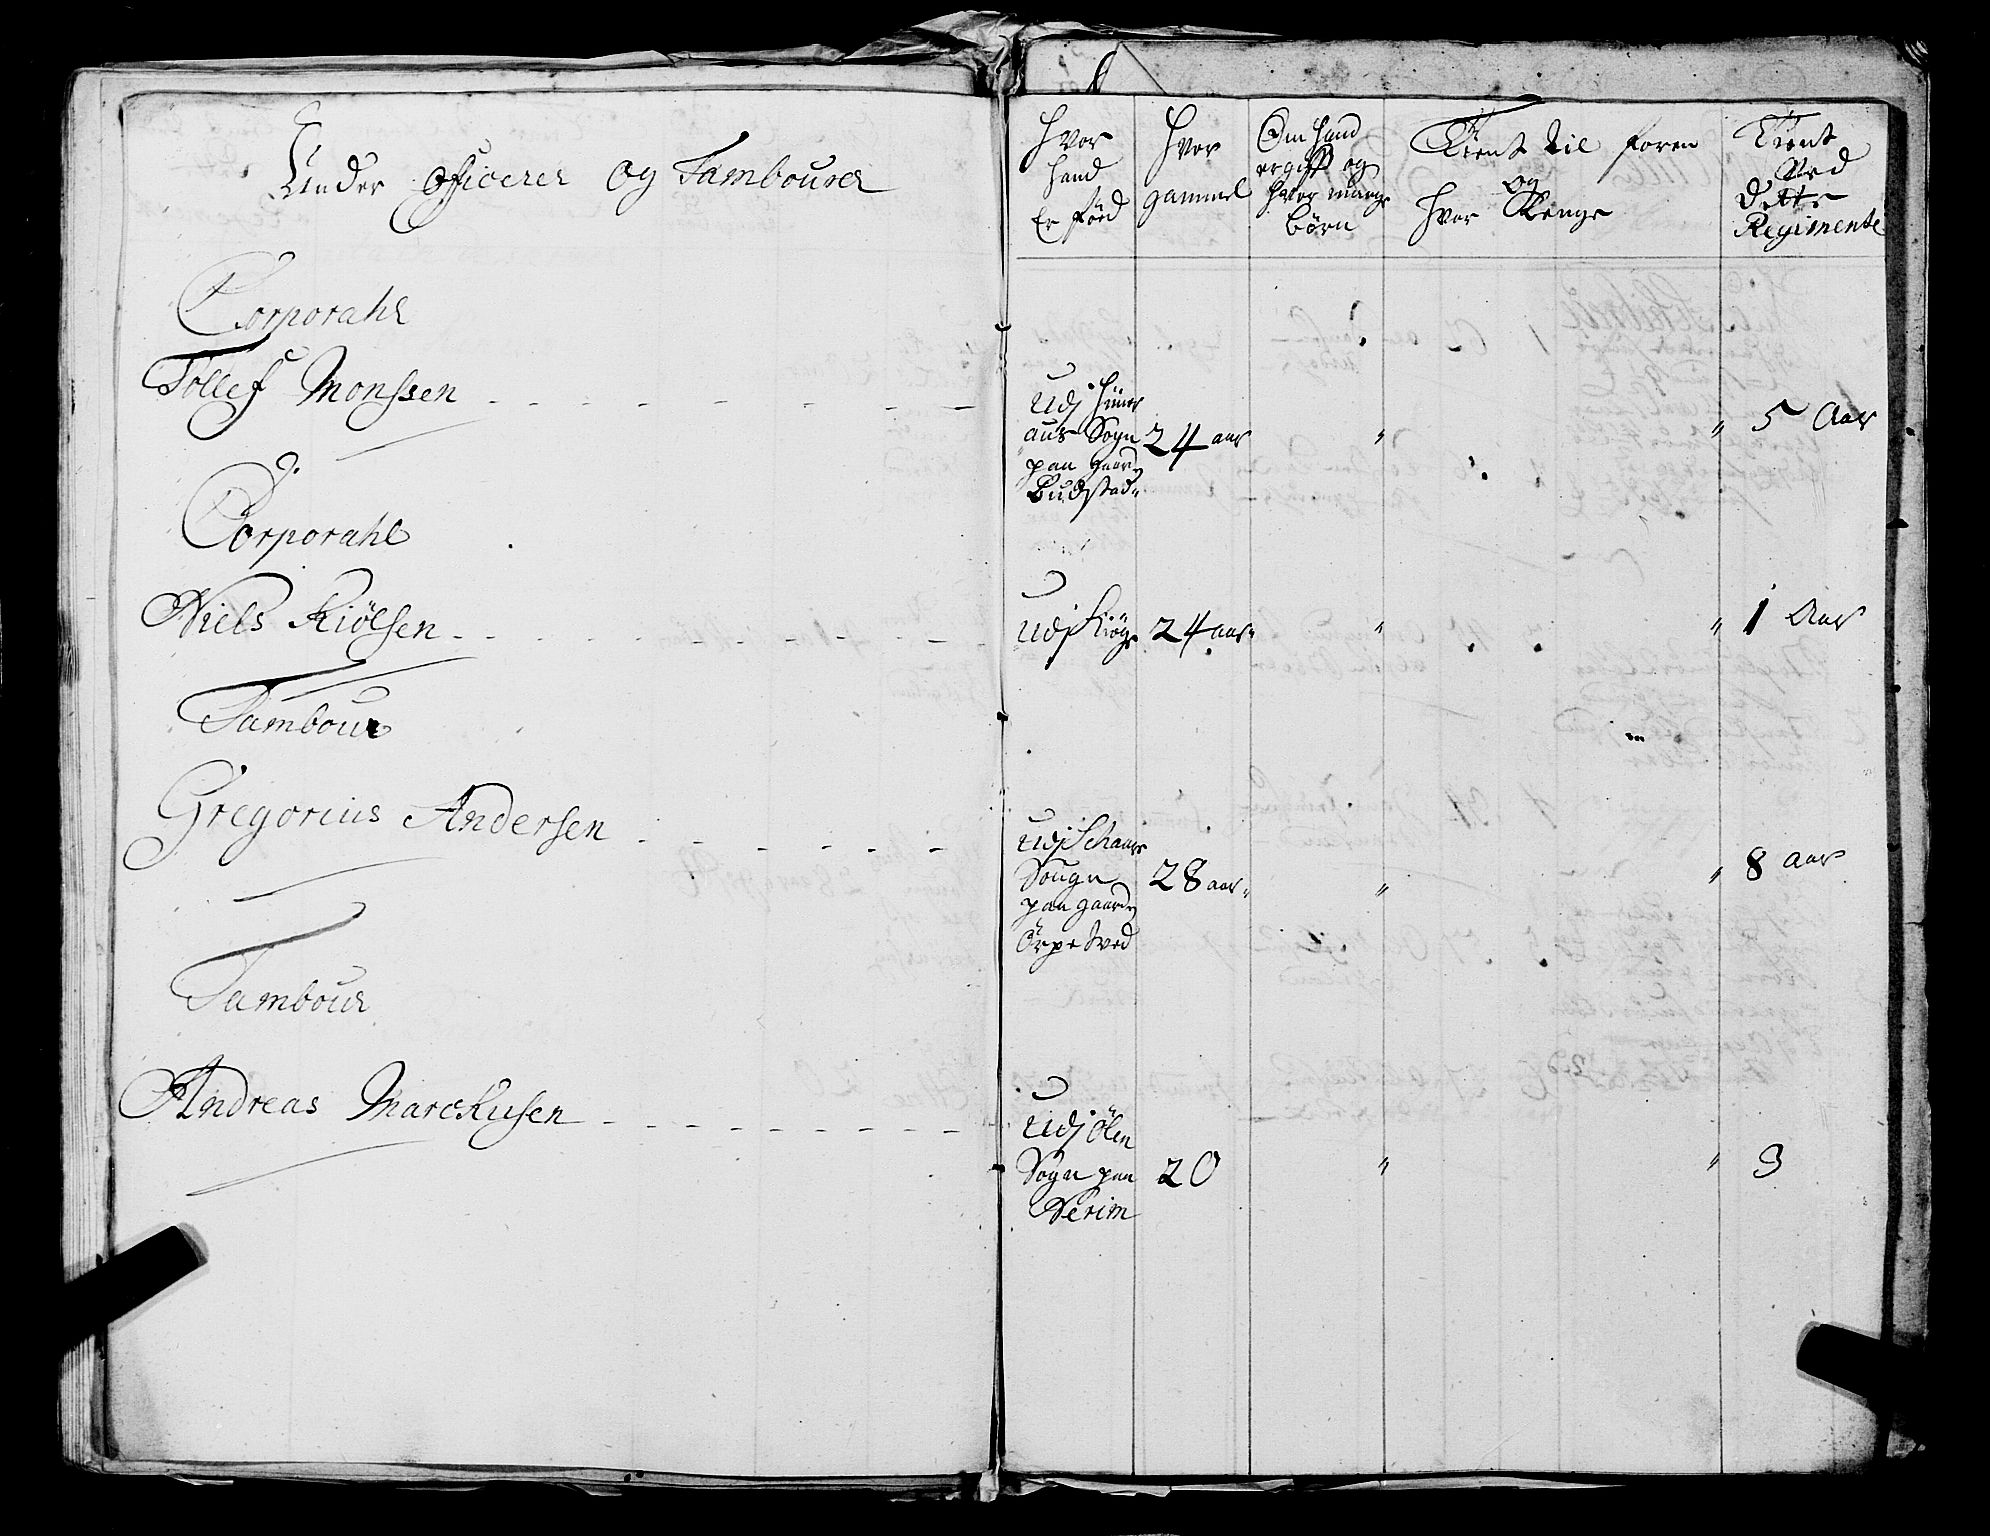 Under Officerer og Tambourer
Corporahl
Tollef Monssen
Corporahl
Niels Kiölsen
Tambour
Gregorius Andersen
Tambour
Andreas Marckusen
Hvor
hand
Er föed
Hvor
gammel
Om hand
er gift og
hvor mange
börn
Tient til foren
og
hvor Lenge
Tient
Ved
dette
Regimente
Udj
aus Sogn
paa gaard
Budstad
24 aar
"
"
5 Aar
Udj Kiöge
24 aar
"
"
1 Aar
Udj Schaare
Sougn
paa gaard
Örpetved
28 aar
"
"
8 aar
Udj Ölen
Sogn paa
Nerim
20
"
"
3